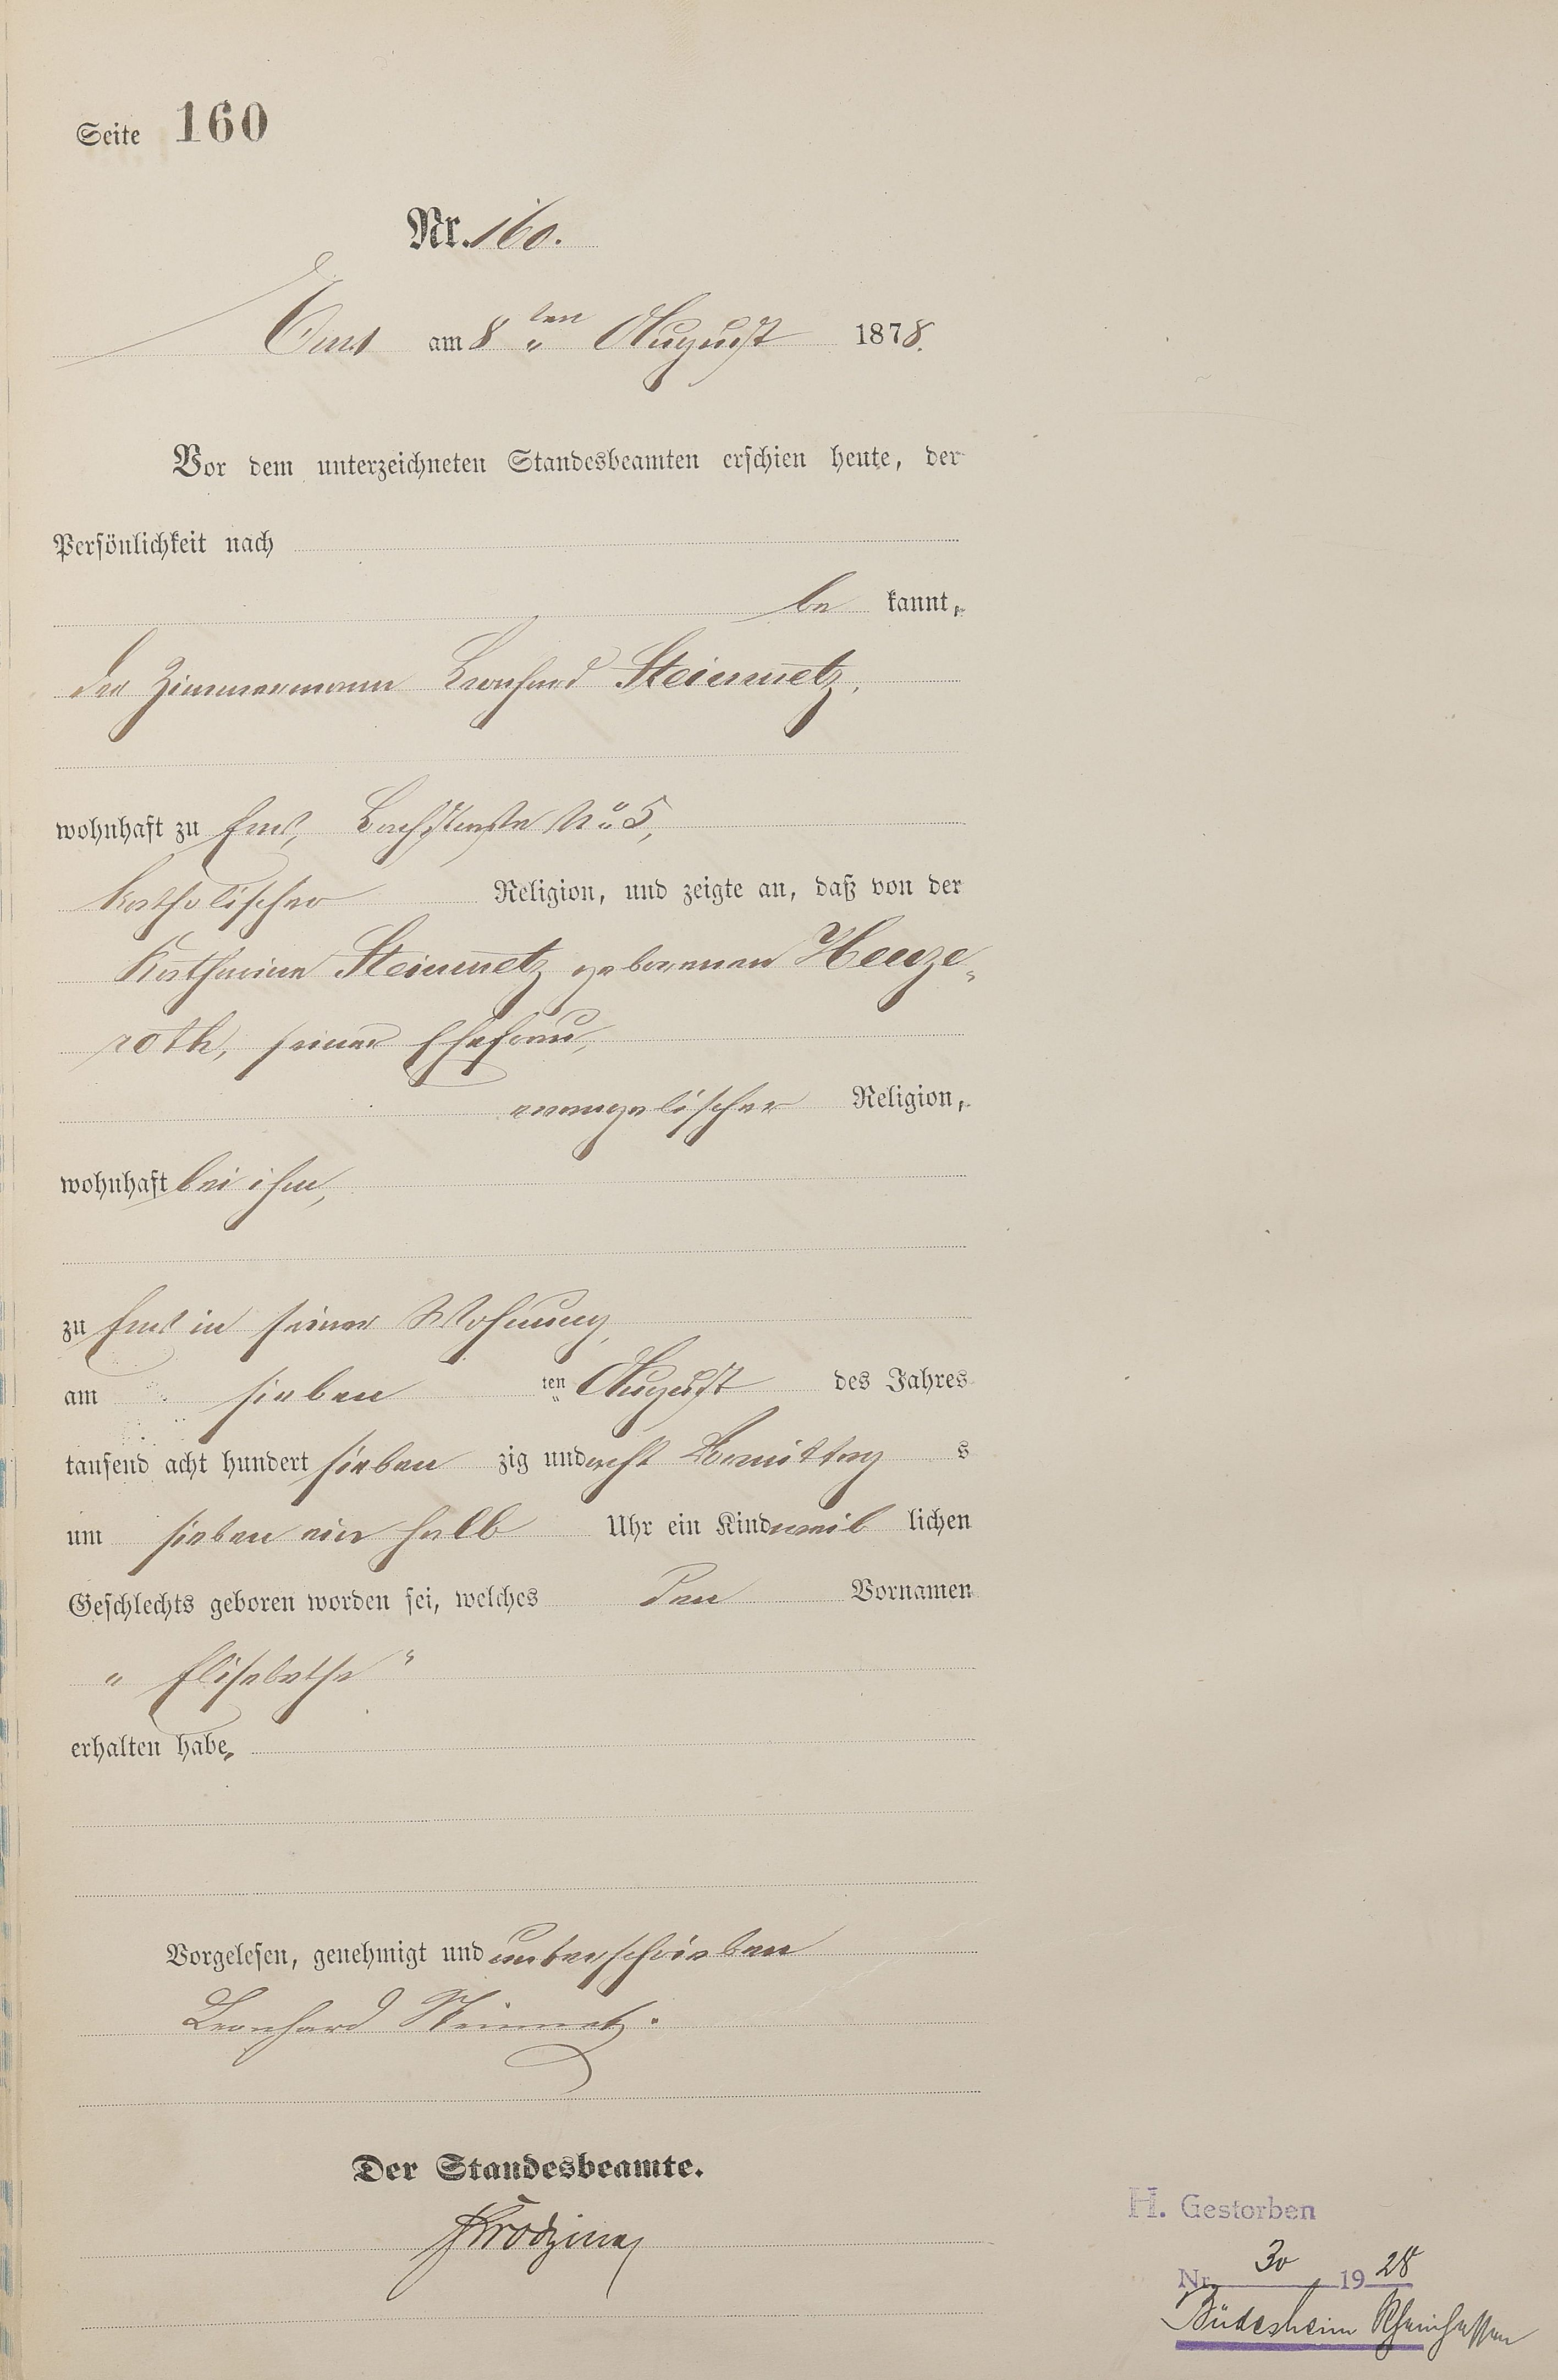 Seite 160
Nr. 160.
Ems am 8 ten August 1878.
Vor dem unterzeichneten Standesbeamten erschien heute, der
Persönlichkeit nach
be kannt,
der Zimmermann Leonhard Steinmetz,
wohnhaft zu Ems, Bachstraße No 5,
katholischer Religion, und zeigte an, daß von der
Katharina Steinmetz geborenen Henze-
roth, seiner Ehefrau,
evangelischer Religion,
wohnhaft bei ihm,
zu Ems in seiner Wohnung,
am sieben ten August des Jahres
tausend acht hundert sieben zig und acht Vormittag s
um sieben ein halb Uhr ein Kind weib lichen
Geschlechts geboren worden sei, welches den Vornamen
„ Elisabetha "
erhalten habe.
Vorgelesen, genehmigt und unterschrieben
Leonhard Steinmetz.
Der Standesbeamte.
H. Gestorben
Nr. 30 19 28
Büdesheim Rheinhessen